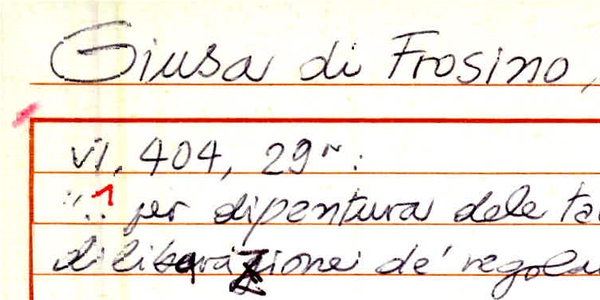 Giusa di Frosino,
VI, 404, 29r:
"..1 per dipentura dele ta
diliberazione de' regola